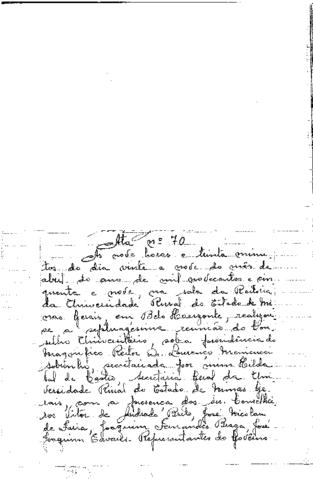 Ata nº 70
As nove horas e trinta minu
tos do dia vinte e nove do mês de
abril do ano de mil novecentos e cin
quenta e nove na sala da Reitoria
da Universidade Rural do Estado de Mi
nas Gerais, em Belo Horizonte, realizou-
se a septuagésima reunião do Con
selho Universitário, sob a presidência do
Magnífico Reitor Dr. Lourenço Menicucci
sobrinho, secretariada por mim
de Castro, Secretária Geral da Uni
versidade Rural do Estado de Minas Ge
rais, com a presença dos srs. Conselhei
ros Vitor de Andrade Brito, José
de Faria, Joaquim Fernandes Braga, José
Joaquim Representantes do Govêrno